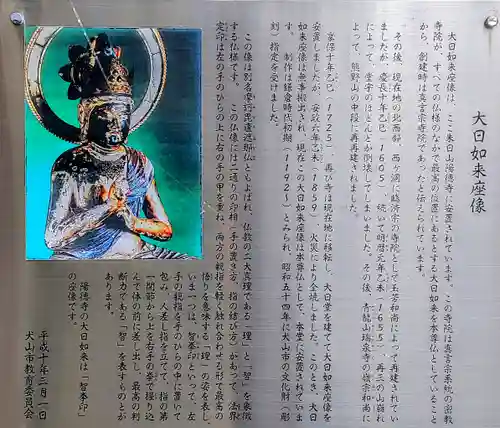 大日如来座像
大日如来座像は、ここ来日山陽徳寺に安置されています。この寺院は真言宗系統の密教
寺院が、すべての仏様のなかで最高の位置にあるとする大日如来を本尊仏としていること
から、創建時は真言宗寺院であったと伝えられています。
その後、現在地の北西部、西ノ洞に臨済宗の寺院として玉芳和尚によって再建されてい
ましたが、慶長十年乙巳（1605）、続いて明暦元年乙未（1655）、再三の山崩れ
によって、堂宇のほとんどが倒壊してしまいました。その後、青龍山瑞泉寺の嶺宗和尚に
よって、熊野山の中段に再再建されました。
享保十年乙巳（1725）、再び寺は現在地に移転し、大日堂を建てて大日如来像を
安置しましたが、安政六年乙未（1859）、火災により全焼しました。このとき、大日
如来座像は無事搬出され、現在この大日如来座像は本尊仏として、本堂に安置されていま
す。制作は鎌倉時代初期（1192〜）とみられ、昭和五十四年に犬山市の文化財（彫
刻）指定を受けました。
この像は別名摩訶毘盧遮那仏ともよばれ、仏教の二大真理である「理」と「智」を象徴
する仏様です。この仏像には二通りの印相（手の置き方、指の結び方）があって、法界
定印は左の手のひらの上に右の手の甲を重ね、両方の親指を軽く触れ合わせる形で最高の
悟りを意味する「理」の姿を表し、
いま一つは、智拳印といって、左
手の親指を手のひらの中に置いて
包み、人差し指を立てて、指の第
一関節から上を右手の拳で握り込
んで体の前に差し出し、最高の判
断力である「智」を表すものとが
あります。
陽徳寺の大日如来は「智拳印」
の座像です。
平成十年三月一日
犬山市教育委員会